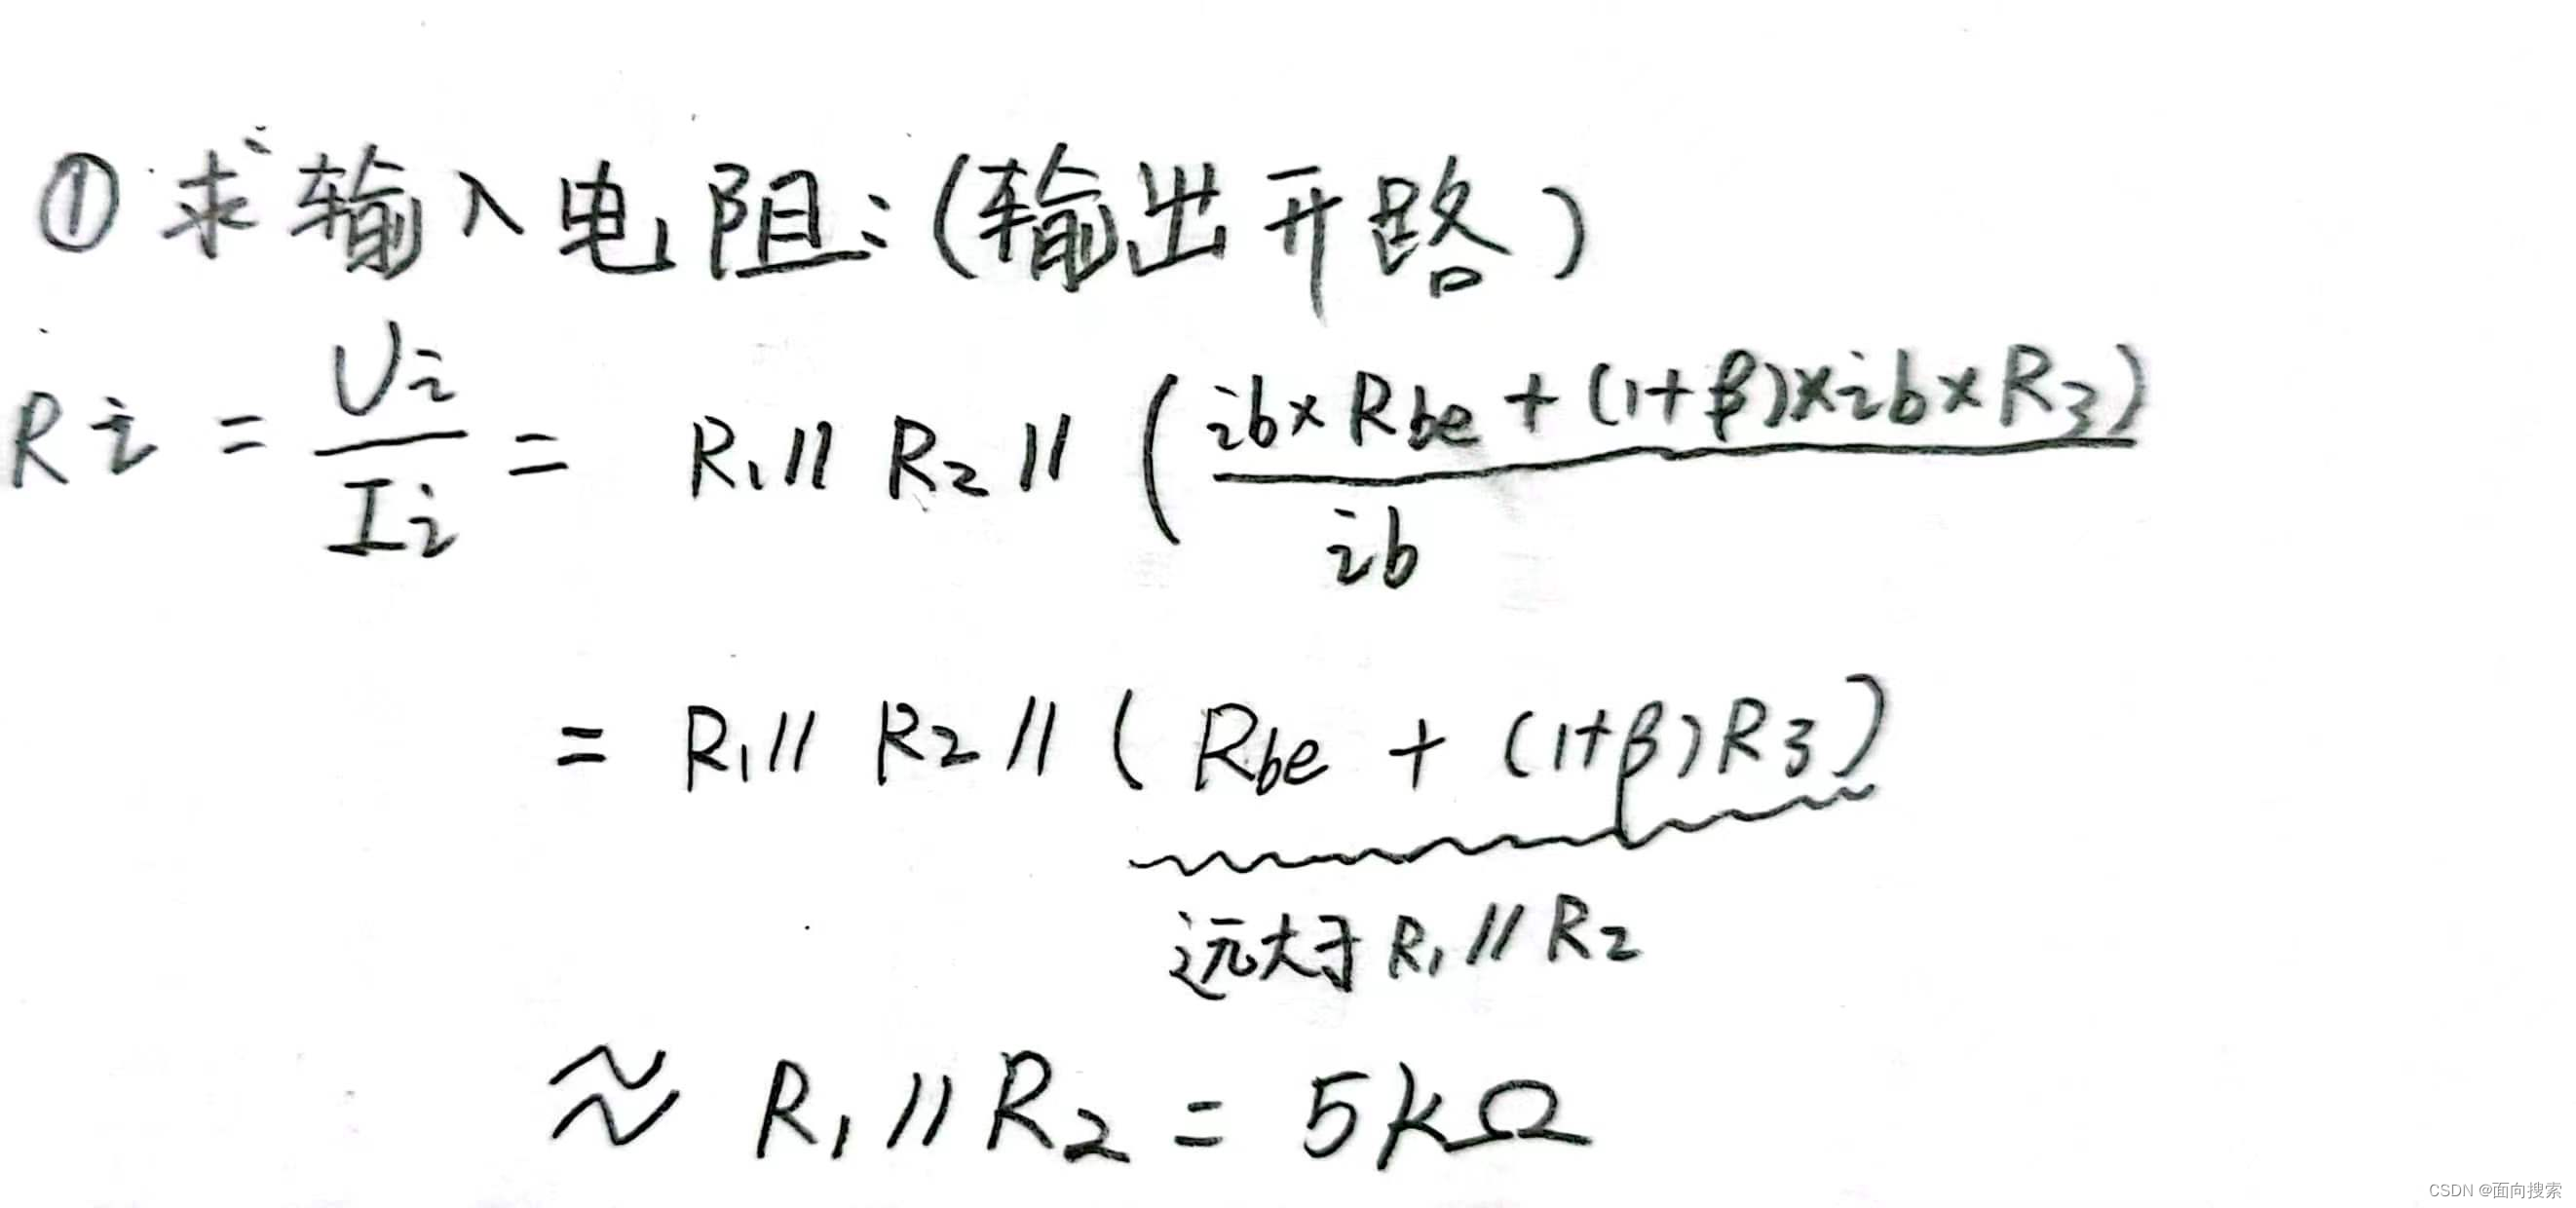 ① 求输入电阻：(输出开路)
Ri = Ui/Ii = R1 // R2 // (ib×Rbe + (1+β)×ib×R3)/ib
= R1 // R2 // (Rbe + (1+β)R3)
远大于 R1 // R2
≈ R1 // R2 = 5kΩ
CSDN @面向搜索